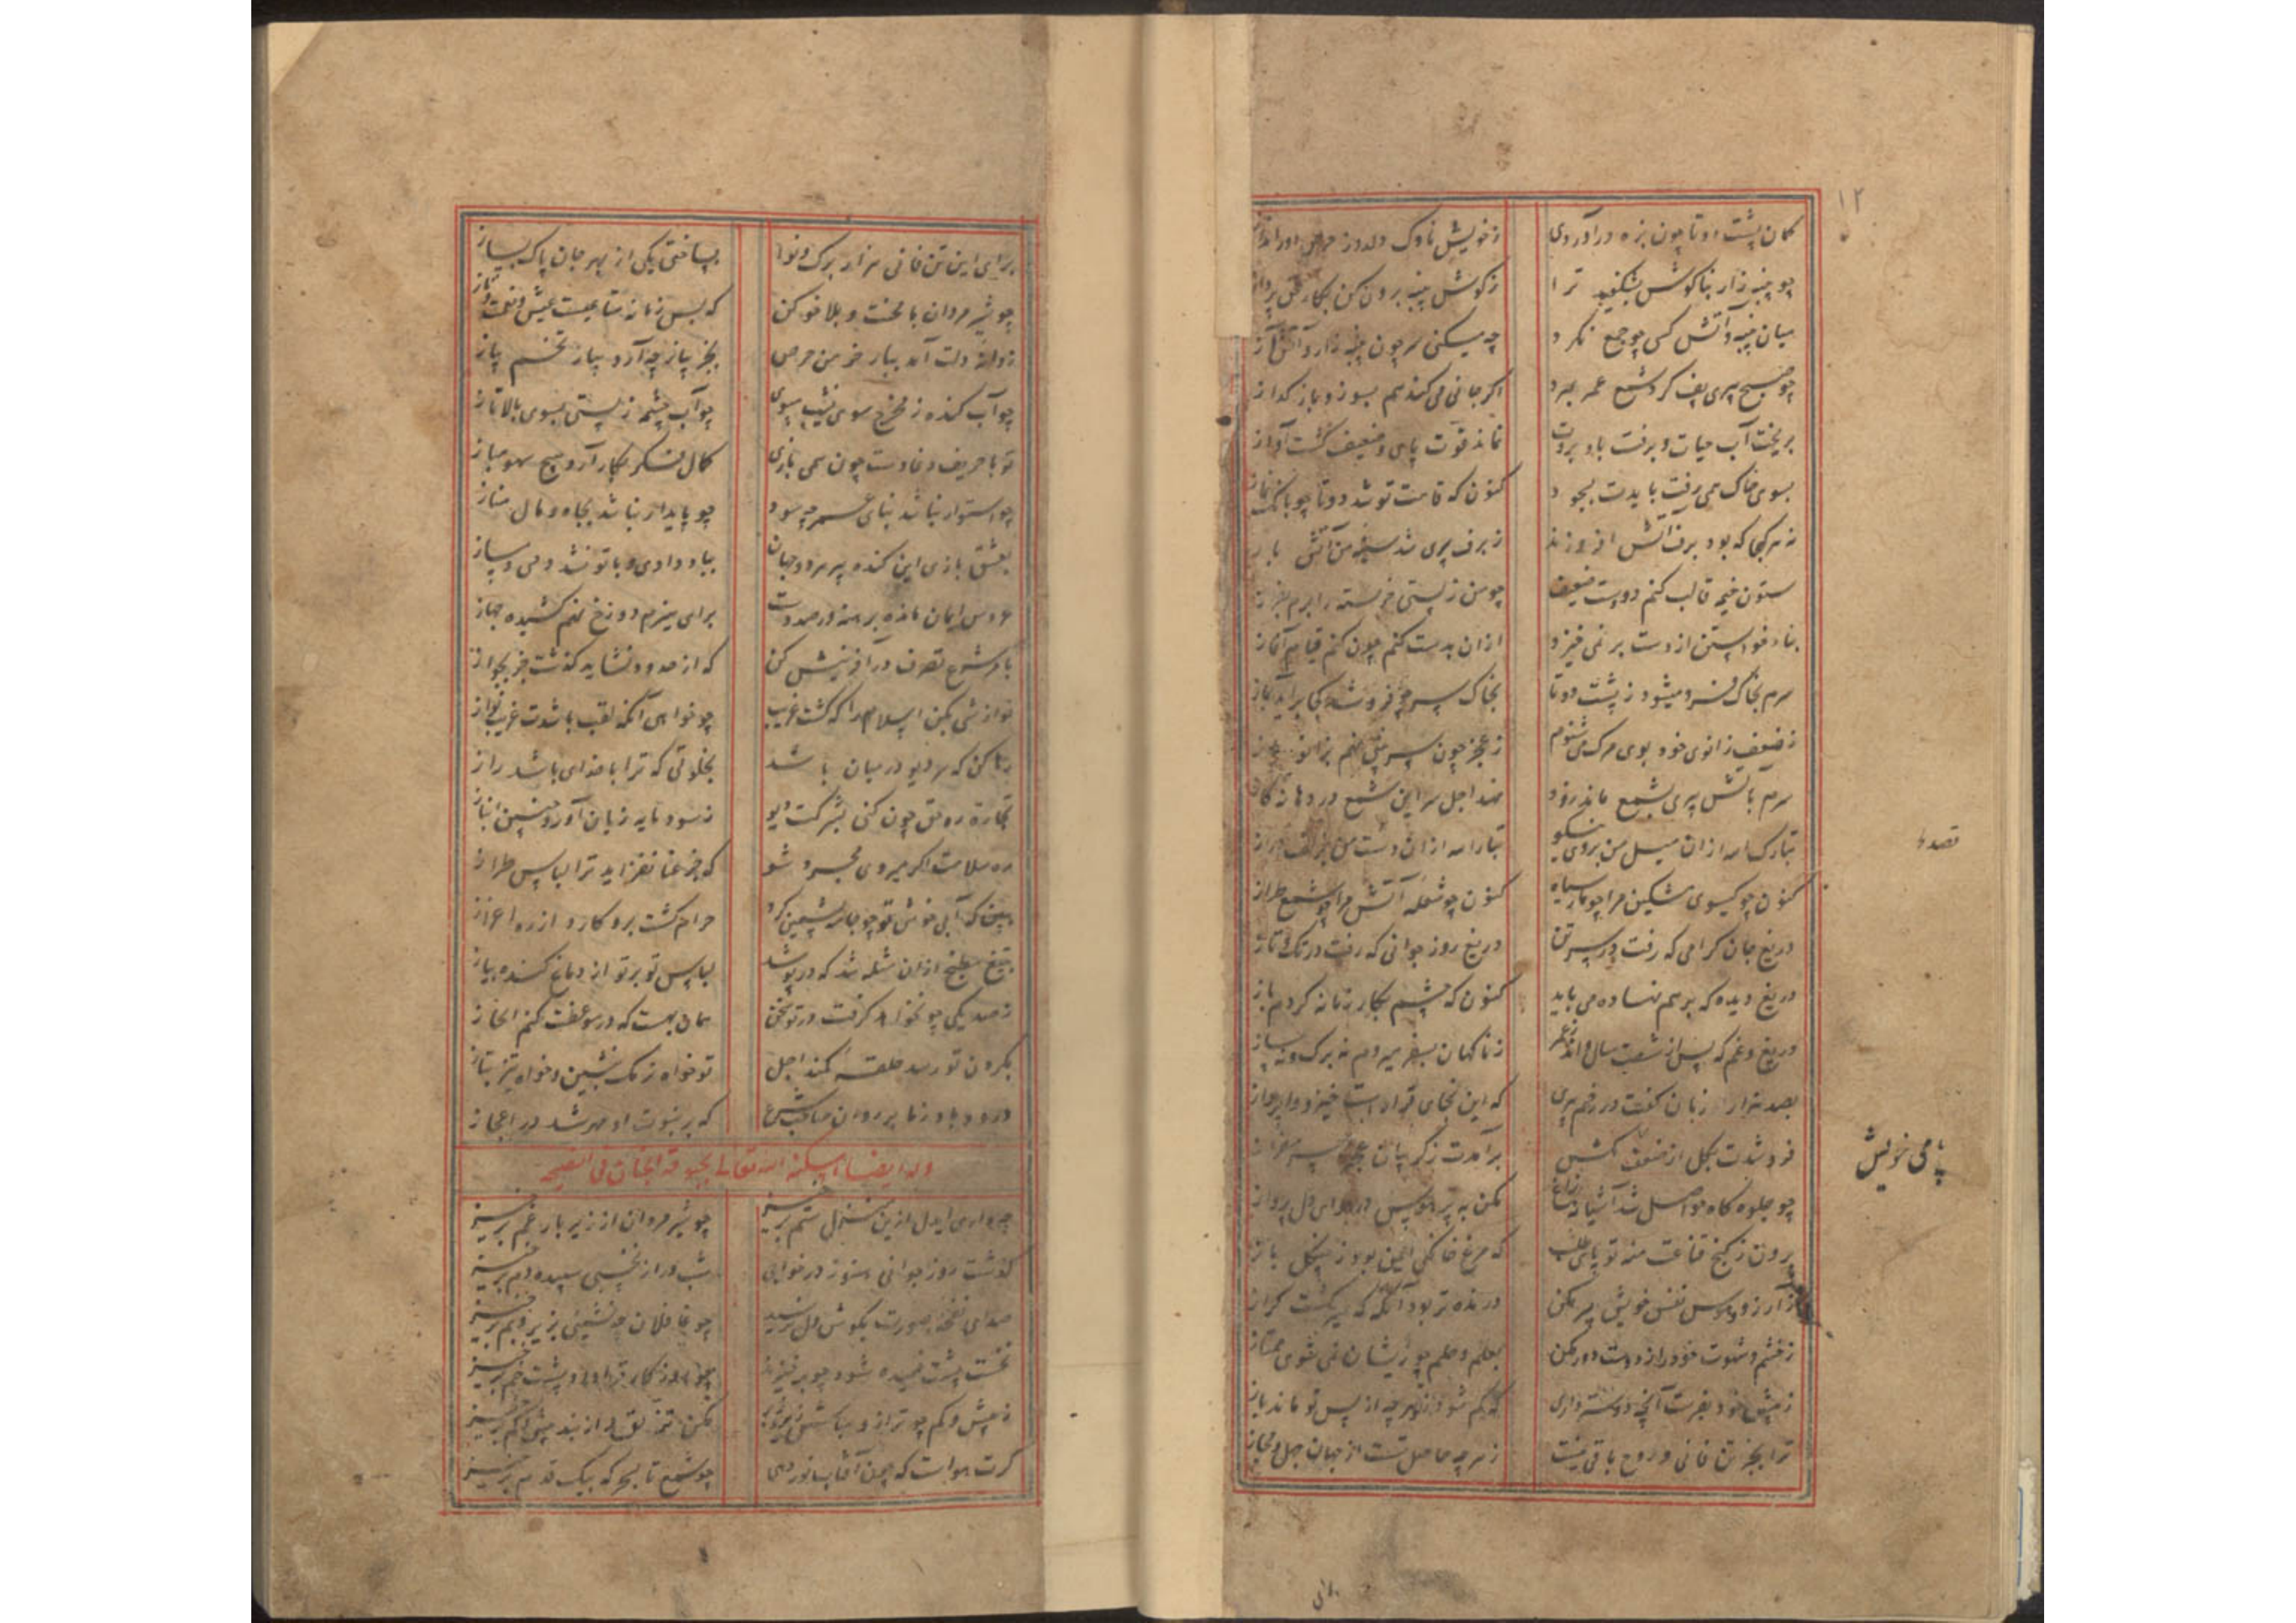 ۱۲
کمان پشت دوتا چون بزه درآوردی ز خویش ناوک دلدوز حرص دور انداز
چو پنبه زار بناگوش بشکفید ترا ز گوش پنبه برون کن بکار حق پرداز
میان پنبه و آتش کسی چو جمع نکرد چه میکنی سر چون پنبه زار و آتش آز
چو صبح پیری پف کرد شمع عمر بمرد اگر جانی می کندهم بسوز و باز گداز
بریخت آب حیات و برفت باد بروت نماند قوت پای و ضعیف گشت آواز
بسوی خاک همی رفت بایدت بسجود کنون که قامت تو شد دوتا چو بانگ نماز
نه هر کجا که بود برف آتش افروزند ز برف پیری شد سینه من آتش باز
ستون خیمه قالب کنم دو دست ضعیف چو من ز پستی خواسته را برم بفراز
بناء خواستن از دست بر نمی خیزد ازان بدست کنم چون کنم قیام آغاز
سرم بخاک فرو میشود ز پشت دوتا بخاک سر چو فرو شد کجا برآید باز
ز ضعف زانوی خود بوی مرگ می شنوم ز عجز چون سر بینی نهم بزانو باز
سرم بآتش پیری بشمع ماند زود نهد اجل سر این شمع در دهانه گاز
تبارک الله ازان میل من بروی نکو تبارک الله ازان دست من بزلف دراز
کنون چو گیسوی مشکین مرا چو مار سیاه کنون چو شعله آتش مرا چو شمع طراز
دریغ جان گرامی که رفت در سر تن دریغ روز جوانی که رفت در تک و تاز
دریغ دیده که بر هم نهاده می باید کنون که چشم بکار زمانه کردم باز
دریغ و غم که پس از شصت سال و اند ز عمر ز ناگهان بسفر میروم نه برگ و نه ساز
بصد هزار زبان گفت در رخم پیری که این نجای قرارست خیز و واپرداز
فرو شدت بگل از ضعف پای کش برآمدت ز گریبان عجز سر
چو جلوه گاه حواصل شد آشیانه زاغ مکن به پر هوس در هوای دل پرواز
برون ز کنج قناعت منه تو پای طلب که مرغ خانگی ایمن بود ز چنگل باز
ز آرزو و هوس نفس خویش پر مکن درنده تر بود آنگه که سیر گشت گراز
ز خشم و شهوت خود را ز دوست دور مکن بعلم و حلم چو زیشان نمی شوی ممتاز
ز پیش خود بفرست آنچه دوستتر داری که گم شود ز تو هرچه از پس تو ماند باز
ترا بجز تن فانی و روح باقی نیست ز هرچه حاصل تست از جهان جهل و مجاز
قصدها
پای خویش
برای
برای این تن فانی هزار برگ و نوا بساختی یکی از بهر جان پاک بساز
چو شیر مردان با محنت و بلا خو کن که بس زمانه متاعیست عیش و نعمت و ناز
ز دانه دلت آمد ببار خرمن حرص بجز پیاز چه آرد ببار تخم پیاز
چو آب گنده ز مخرج سوی نشیب مپوی چو آب چشمه ز پستی بسوی بالا تاز
تو با حریف دغا دست چون همی بازی کمال فکر بکار آر و هیچ سهو مباز
چو استوار نباشد بنای عمر چه سود چو پایدار نباشد بجاه و مال مناز
بعشق بازی این گنده پیر هر دو جهان بباد دادی و با تو نشد دمی دمساز
عروس ایمان مانده برهنه در صددت برای هیزم دوزخ نهم کشیده جهاز
بامر شرع تصرف در آفرینش کن که از حدود نشاید گذشت جز بجواز
نوازشی بکن اسلام را که گشت غریب چو خواهی آنکه لقب باشدت غریب نواز
رها کن که هر دیو در میان باشد بخلوتی که ترا با خدای باشد راز
تجارت ره حق چون کنی بشرکت دیو ز سود مایه زیان آورد چنین انباز
ره سلامت اگر میروی مجرد شو که جز عنا نفزاید ترا لباس طراز
ببین که آبی خوش تو چو جامه پشمین کرد حرام گشت برو کارد از ره اعزاز
بتیغ مطبخ ازان مثله شد که در پوشد لباس تو بر تو از دماغ گنده پیاز
ز صد یکی چو نخواهد گرفت در تو سخن همان بهست که در موعظت کنم ایجاز
بگردن تو رسد حلقه کمند اجل تو خواه نرمک بنشین و خواه تیز بتاز
درود باد ز ما بر روان صاحب شرع که بر نبوت او مهر شد در اعجاز
وله ایضا اسکنه الله تعالی بحبوحة الجنان فی النصیحه
چه داری ایدل ازین منزل ستم برخیز چو شیر مردان از زیر بار غم برخیز
گذشت روز جوانی هنوز در خوابی شب دراز بخسبی سپیده دم برخیز
صدای نفخه صورت بگوش دل نرسید چو غافلان چه نشینی بزیر و بم برخیز
نخست پشت خمیده شود چو برخیزند چو روزگار ترا داد پشت خم برخیز
ز بیش و کم چو ترازو مکن تعلق و از بند بیش و کم برخیز
گرت هواست که چون آفتاب نور دهی چو شمع تا بسحرگه بیک قدم برخیز